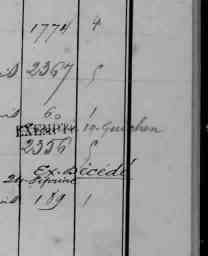 1774 4
2367 5
60 1
EXEMPTÉ 19. Guichen
2356 5
Ex. Décédé
189 1